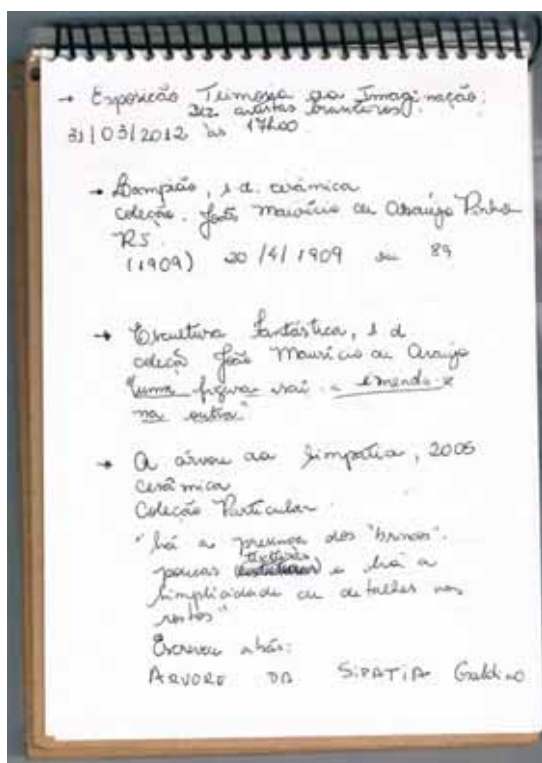 → Exposição Teimosia da Imaginação:
Dez artistas brasileiros.
31/03/2012 às 17h00
→ Lampião, s.d. cerâmica
coleção. João Maurício de Araújo Pinho
RJ
(1909) 20/4/1909 89
→ Escultura Fantástica, s d
coleçã João Maurício de Araujo
"uma figura sai e emenda-se
na outra"
→ A árvore da Simpatia, 2005
cerâmica
Coleção Particular
"há a presença dos "brincos".
texturas
poucas e há a
simplicidade de detalhes nos
rostos"
Escreveu atrás:
ARVORE DA SIPATIA Galdino